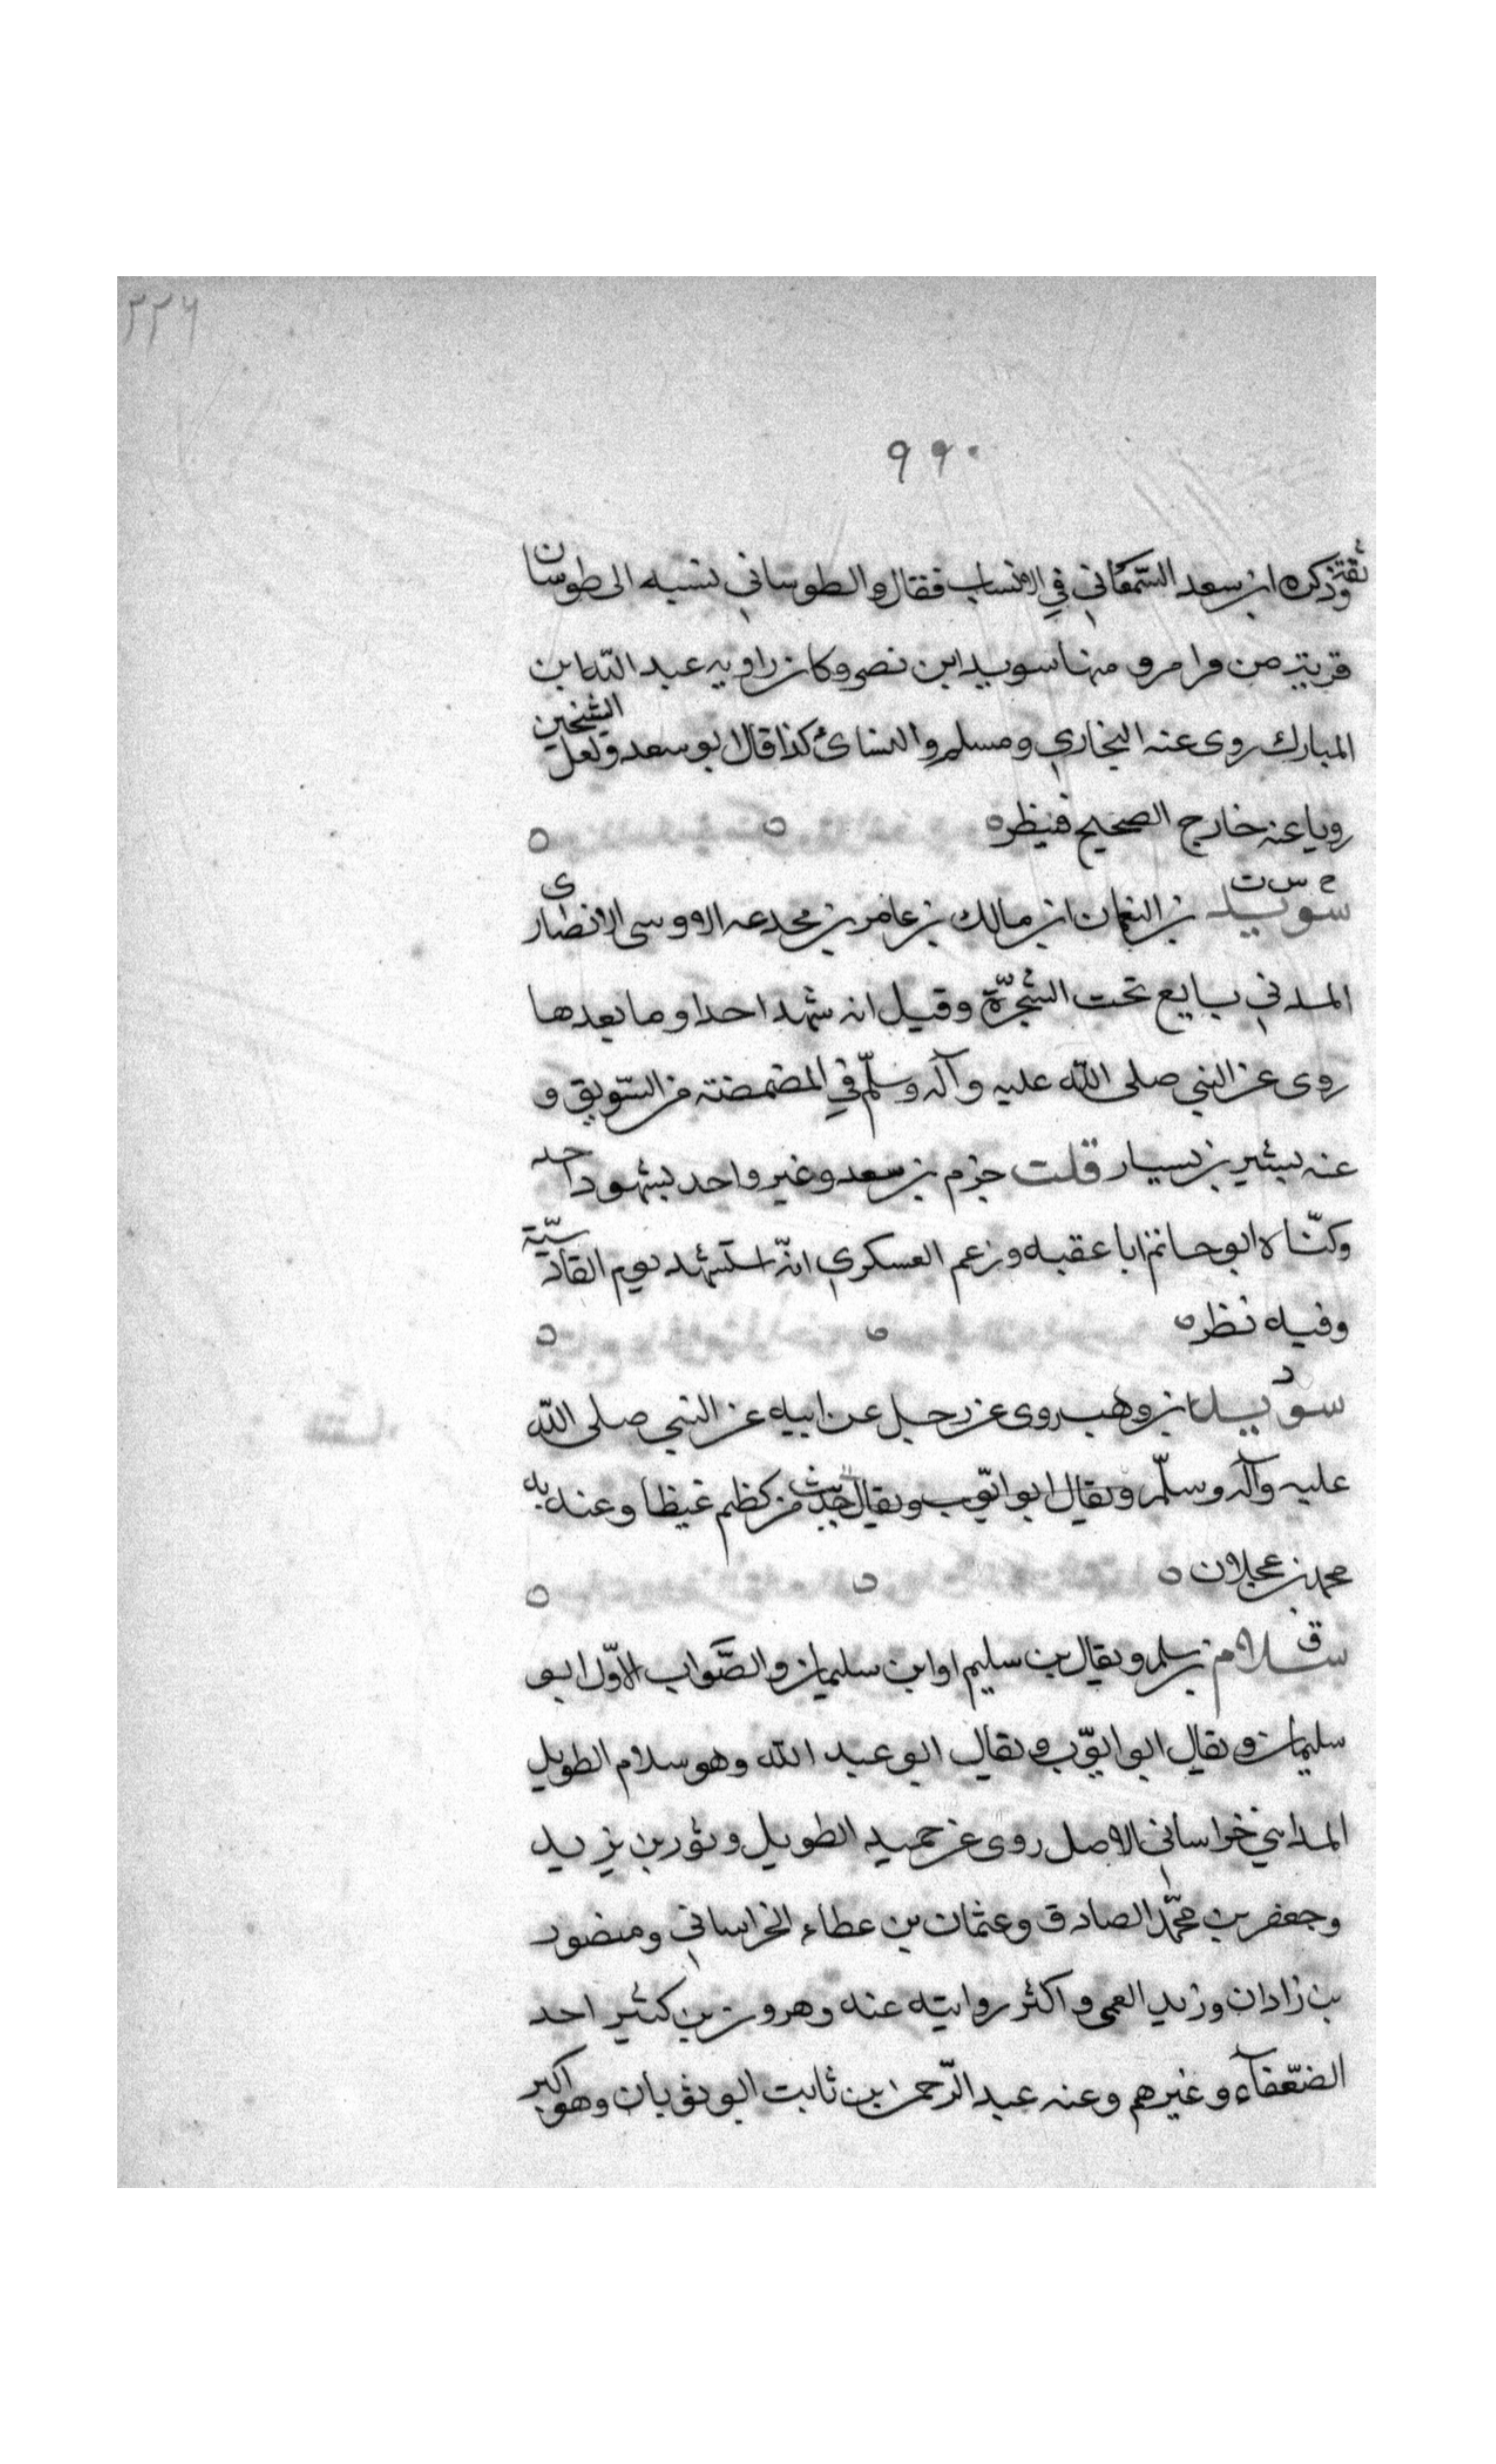 ٣٢٦
٩٩٠
ثقة وذكره ابن سعد السمعاني في الانساب فقال والطوساني نسبه الى طوسان
قرية من قرا مرو منها سويد ابن نصر وكان راويه عبد الله ابن
المبارك روى عنه البخاري ومسلم والنسائ كذا قال ابو سعد ولعل الشيخين
رويا عنه خارج الصحيح فينظره
خ س ق
سويد بن النعمان ابن مالك بن عامر بن مجدعه الاوسى الانصارى
المدني بايع تحت الشّجرة وقيل انه شهد احدا وما بعدها
روى عن النبي صلى الله عليه وآله وسلّم في المضمضة من السّويق و
عنه بشير بن يسار قلت جزم بن سعد وغير واحد بشهود احد
وكنّاه ابو حاتم ابا عقبه وزعم العسكري انّه استشهد يوم القادسيّة
وفيه نظره
د
سويد ابن وهب روى عن رجل عن ابيه عن النبي صلى الله
عليه وآله وسلّم ويقال ابو ايّوب ويقال حديث من كظم غيظا وعنه به
محمد بن عجلان
ق
سلام بن سلم ويقال بن سليم او ابن سليمان والصّواب الاوّل ابو
سليمان ويقال ابو ايّوب ويقال ابو عبد الله وهو سلام الطويل
المدايني خراساني الاصل روى عن حميد الطويل وثور بن يزيد
وجعفر بن محمّد الصادق وعثمان بن عطاء الخراساني ومنصور
بن زاذان وزيد العمى واكثر روايته عنه وهرون بن كثير احد
الضّعفآء وغيرهم وعنه عبد الرّحمن ابن ثابت ابو ثوبان وهو اكبر